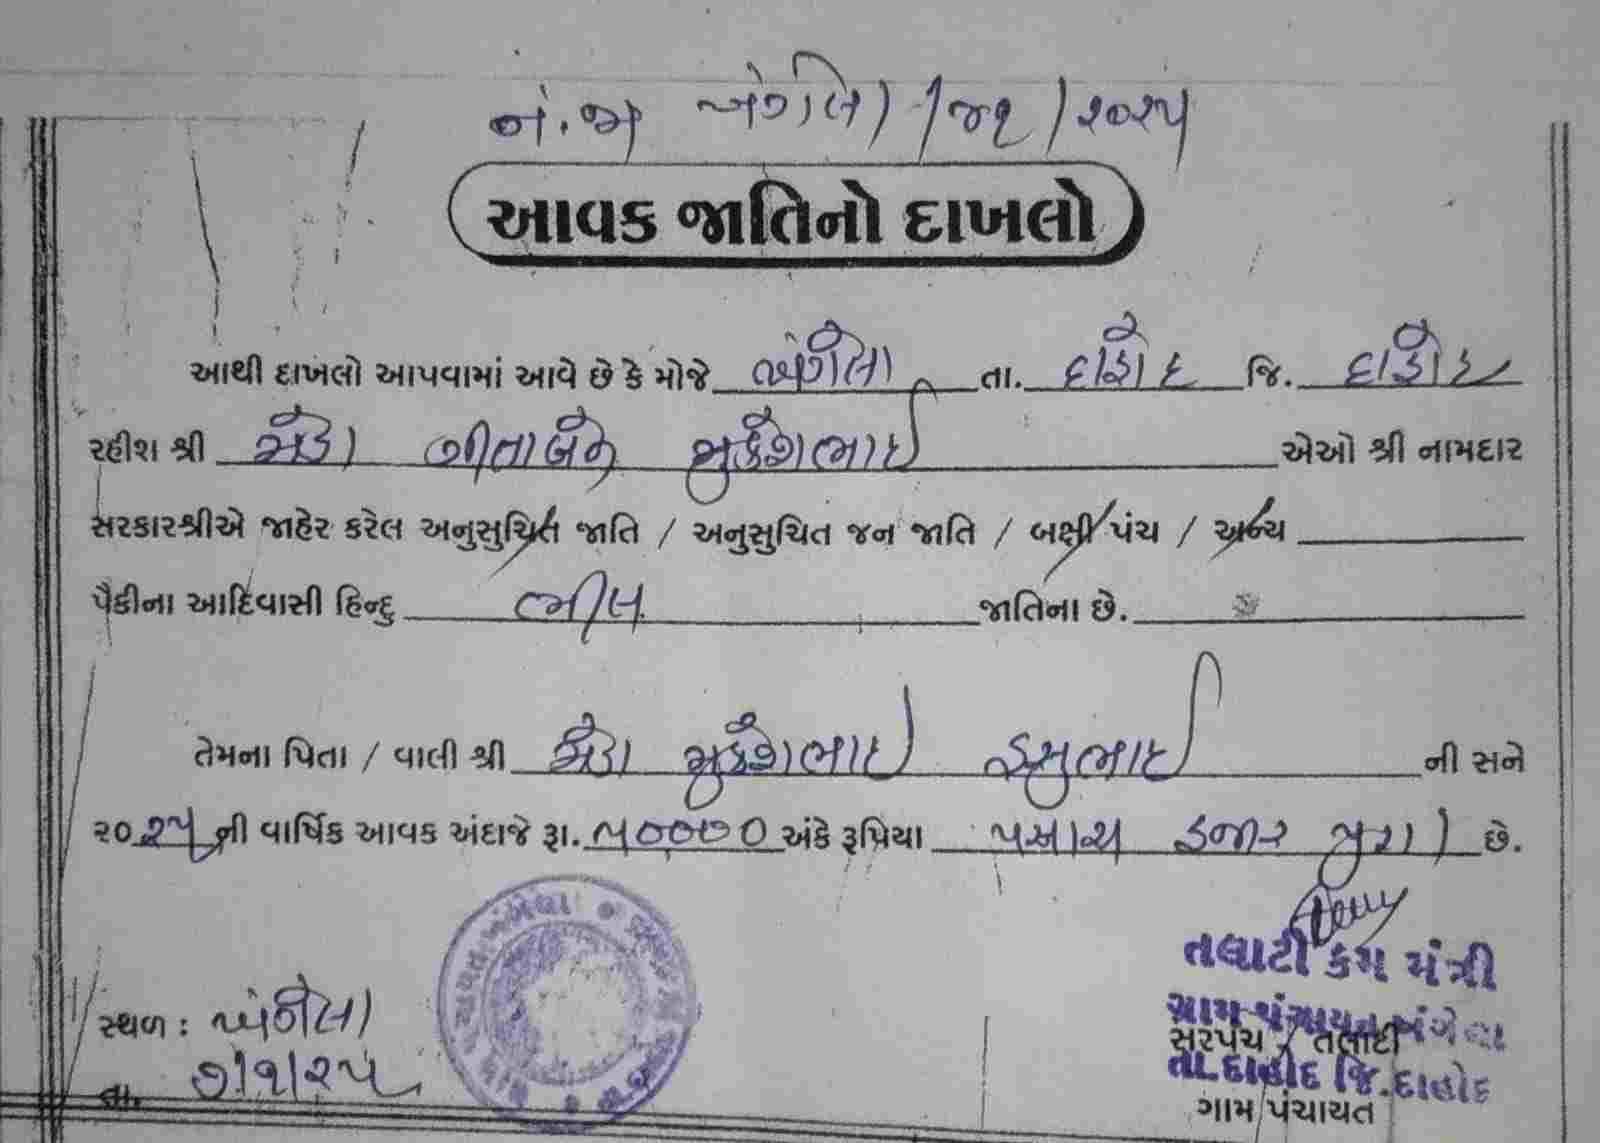 નં.જા ખંગેલા /૪૧/૨૦૨૫
આવક જાતિનો દાખલો
આથી દાખલો આપવામાં આવે છે કે મોજે ખંગેલા તા. દાહોદ જિ. દાહોદ
રહીશ શ્રી મેડા ગીતાબેન મુકેશભાઈ એઓ શ્રી નામદાર
સરકારશ્રીએ જાહેર કરેલ અનુસુચિત જાતિ / અનુસુચિત જન જાતિ / બક્ષી પંચ / અન્ય
પૈકીના આદિવાસી હિન્દુ ભીલ જાતિના છે.
તેમના પિતા / વાલી શ્રી મેડા મુકેશભાઈ હસુભાઈ ની સને
૨૦૨૫ ની વાર્ષિક આવક અંદાજે રૂા. ૫૦૦૦૦ અંકે રૂપિયા પચાસ હજાર પુરા છે.
તલાટી કમ મંત્રી
ગ્રામ પંચાયત ખંગેલા
સ્થળ : ખંગેલા
સરપંચ / તલાટી
તા.દાહોદ જિ.દાહોદ
તા. ૭/૧/૨૫
ગામ પંચાયત